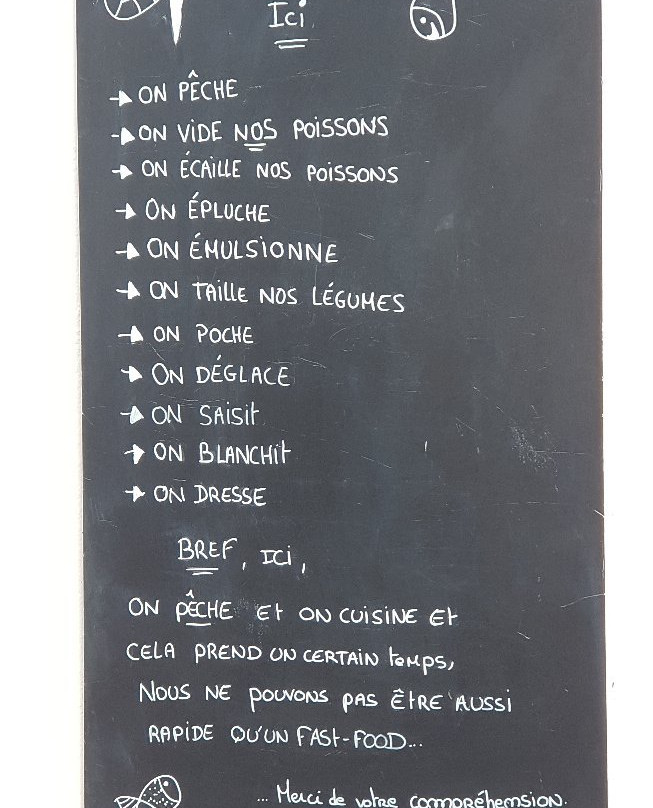 Ici
→ ON PÊCHE
→ ON VIDE NOS POISSONS
→ ON ÉCAILLE NOS POISSONS
→ ON ÉPLUCHE
→ ON ÉMULSIONNE
→ ON TAILLE NOS LÉGUMES
→ ON POCHE
→ ON DÉGLACE
→ ON SAISIT
→ ON BLANCHIT
→ ON DRESSE
BREF, ICI,
ON PÊCHE ET ON CUISINE ET
CELA PREND UN CERTAIN TEMPS,
NOUS NE POUVONS PAS ÊTRE AUSSI
RAPIDE QU'UN FAST-FOOD...
... Merci de votre compréhension.